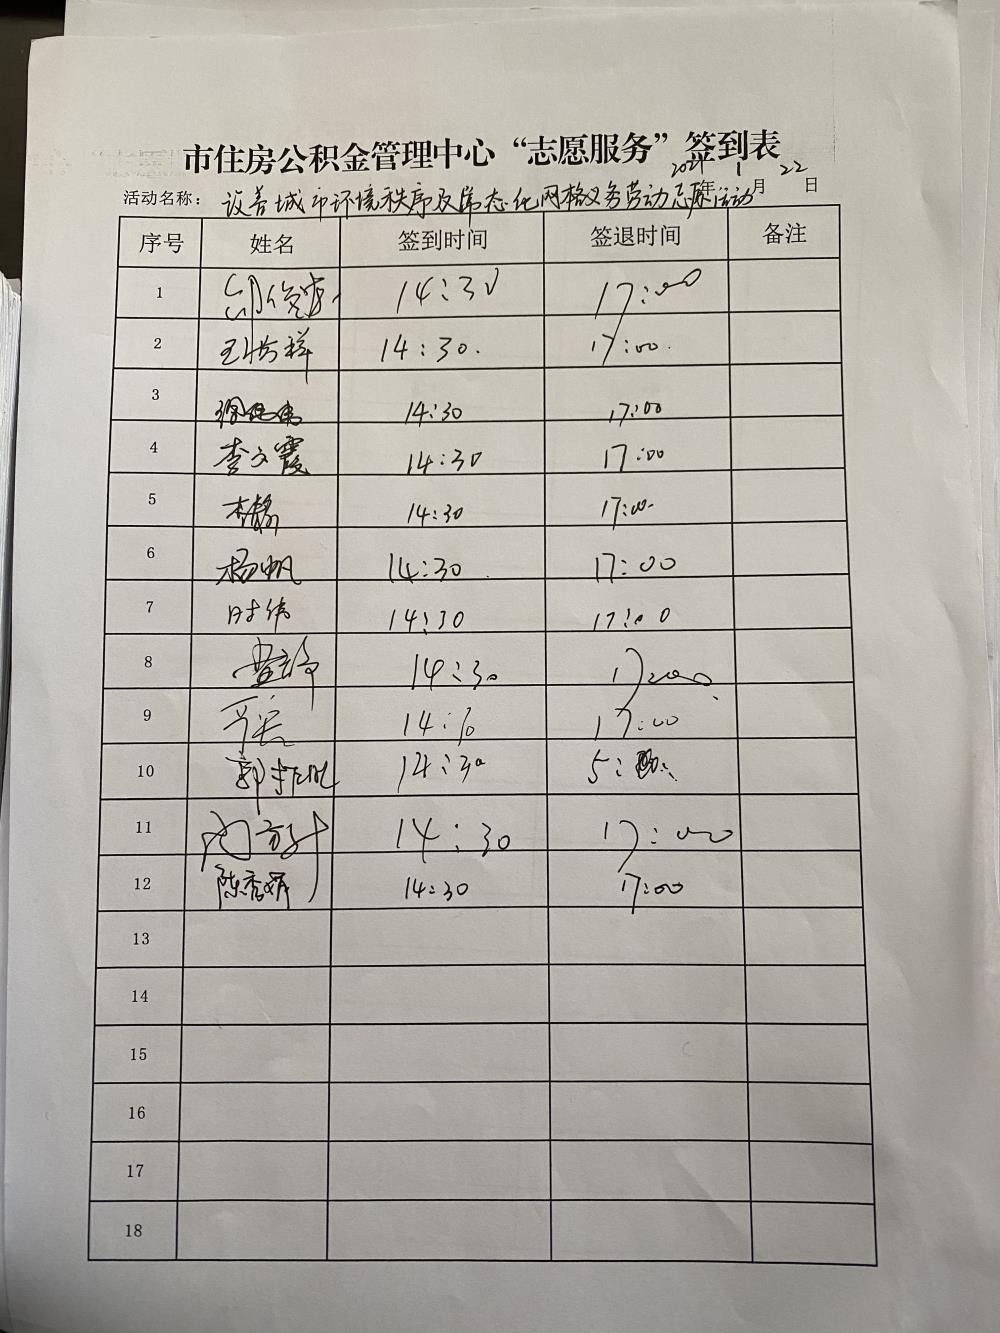 市住房公积金管理中心“志愿服务”签到表
2021年1月22日
活动名称：设善城市环境秩序及常态化网格义务劳动志愿活动
序号 姓名 签到时间 签退时间 备注
1 14:30 17:00
2 14:30. 17:00.
3 14:30 17:00
4 李文霞 14:30 17:00
5 14:30 17:00.
6 杨帆 14:30 17:00
7 时伟 14:30 17:00
8 14:30 17:00
9 17:00
10 14:30 5:
11 14:30 17:00
12 陈秀娟 14:30 17:00
13
14
15
16
17
18